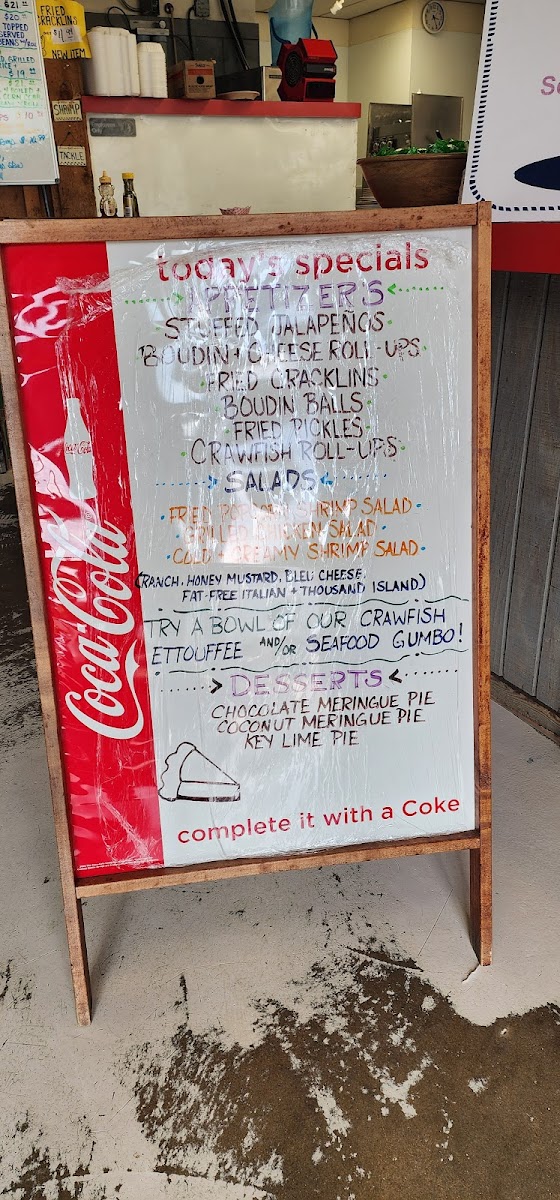 $21
$20
TOPPED
FRIED
CRACKLINS
NEW ITEM
$19
SHRIMP
TACKLE
today's specials
APPETIZERS
STUFFED JALAPEÑOS
BOUDIN + CHEESE ROLL-UPS
FRIED CRACKLINS
BOUDIN BALLS
FRIED PICKLES
CRAWFISH ROLL-UPS
SALADS
FRIED POPCORN SHRIMP SALAD
GRILLED CHICKEN SALAD
COLD + CREAMY SHRIMP SALAD
(RANCH, HONEY MUSTARD, BLEU CHEESE,
FAT-FREE ITALIAN + THOUSAND ISLAND)
TRY A BOWL OF OUR CRAWFISH
ETTOUFFEE AND/OR SEAFOOD GUMBO!
> DESSERTS <
CHOCOLATE MERINGUE PIE
COCONUT MERINGUE PIE
KEY LIME PIE
complete it with a Coke
Coca-Cola